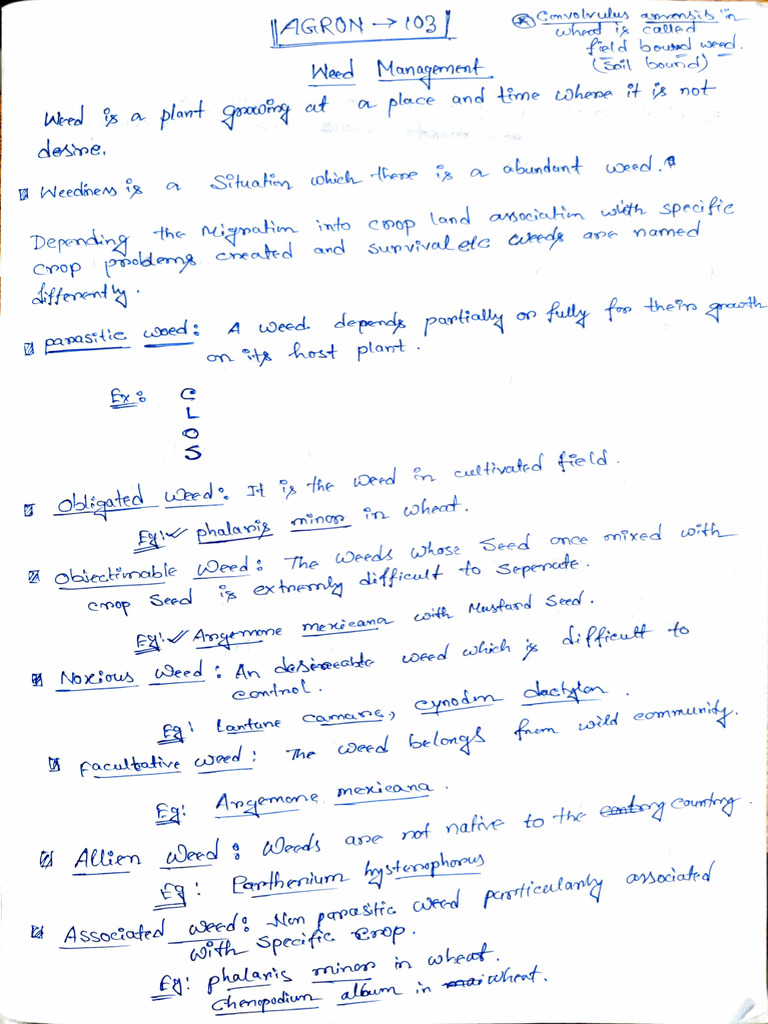 AGRON → 103
* Convolvulus arvensis in
wheat is called
field bound weed.
(soil bound)
Weed Management
Weed is a plant growing at a place and time where it is not
desire.
Weediness is a Situation which there is a abundant weed.
Depending the Migration into crop land association with specific
crop problems created and survival etc weeds are named
differently.
parasitic weed: A weed depends partially or fully for their growth
on its host plant.
Ex: C
L
O
S
Obligated weed: It is the weed in cultivated field.
Eg: ✓ phalaris minor in wheat.
Objectimable weed: The weeds whose seed once mixed with
crop seed is extremly difficult to seperate.
Eg: ✓ Argemone mexicana with Mustard Seed.
Noxious weed: An desireable weed which is difficult to
control.
Eg: Lantane camare, cynodon dactylon.
facultative weed: The weed belongs from wild community.
Eg: Argemone mexicana.
Allien weed: Weeds are not native to the country.
Eg: Parthenium hysterophorus
Associated weed: Non parasitic weed particularly associated
with specific crop.
Eg: phalaris minor in wheat.
chenopodium album in wheat.